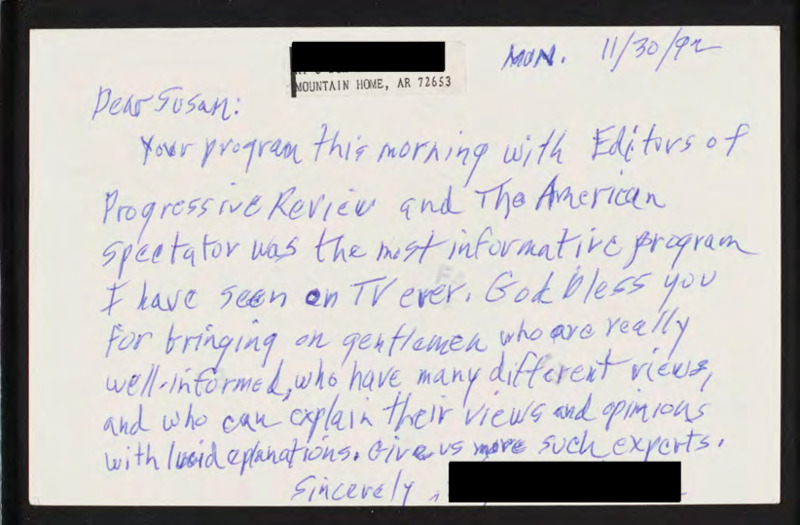 Mon. 11/30/92
MOUNTAIN HOME, AR 72653
Dear Susan:
Your program this morning with Editors of
Progressive Review and The American
spectator was the most informative program
I have seen on TV ever. God bless you
for bringing on gentlemen who are really
well-informed, who have many different views,
and who can explain their views and opinions
with lucid eplanations. Give us more such experts.
Sincerely,